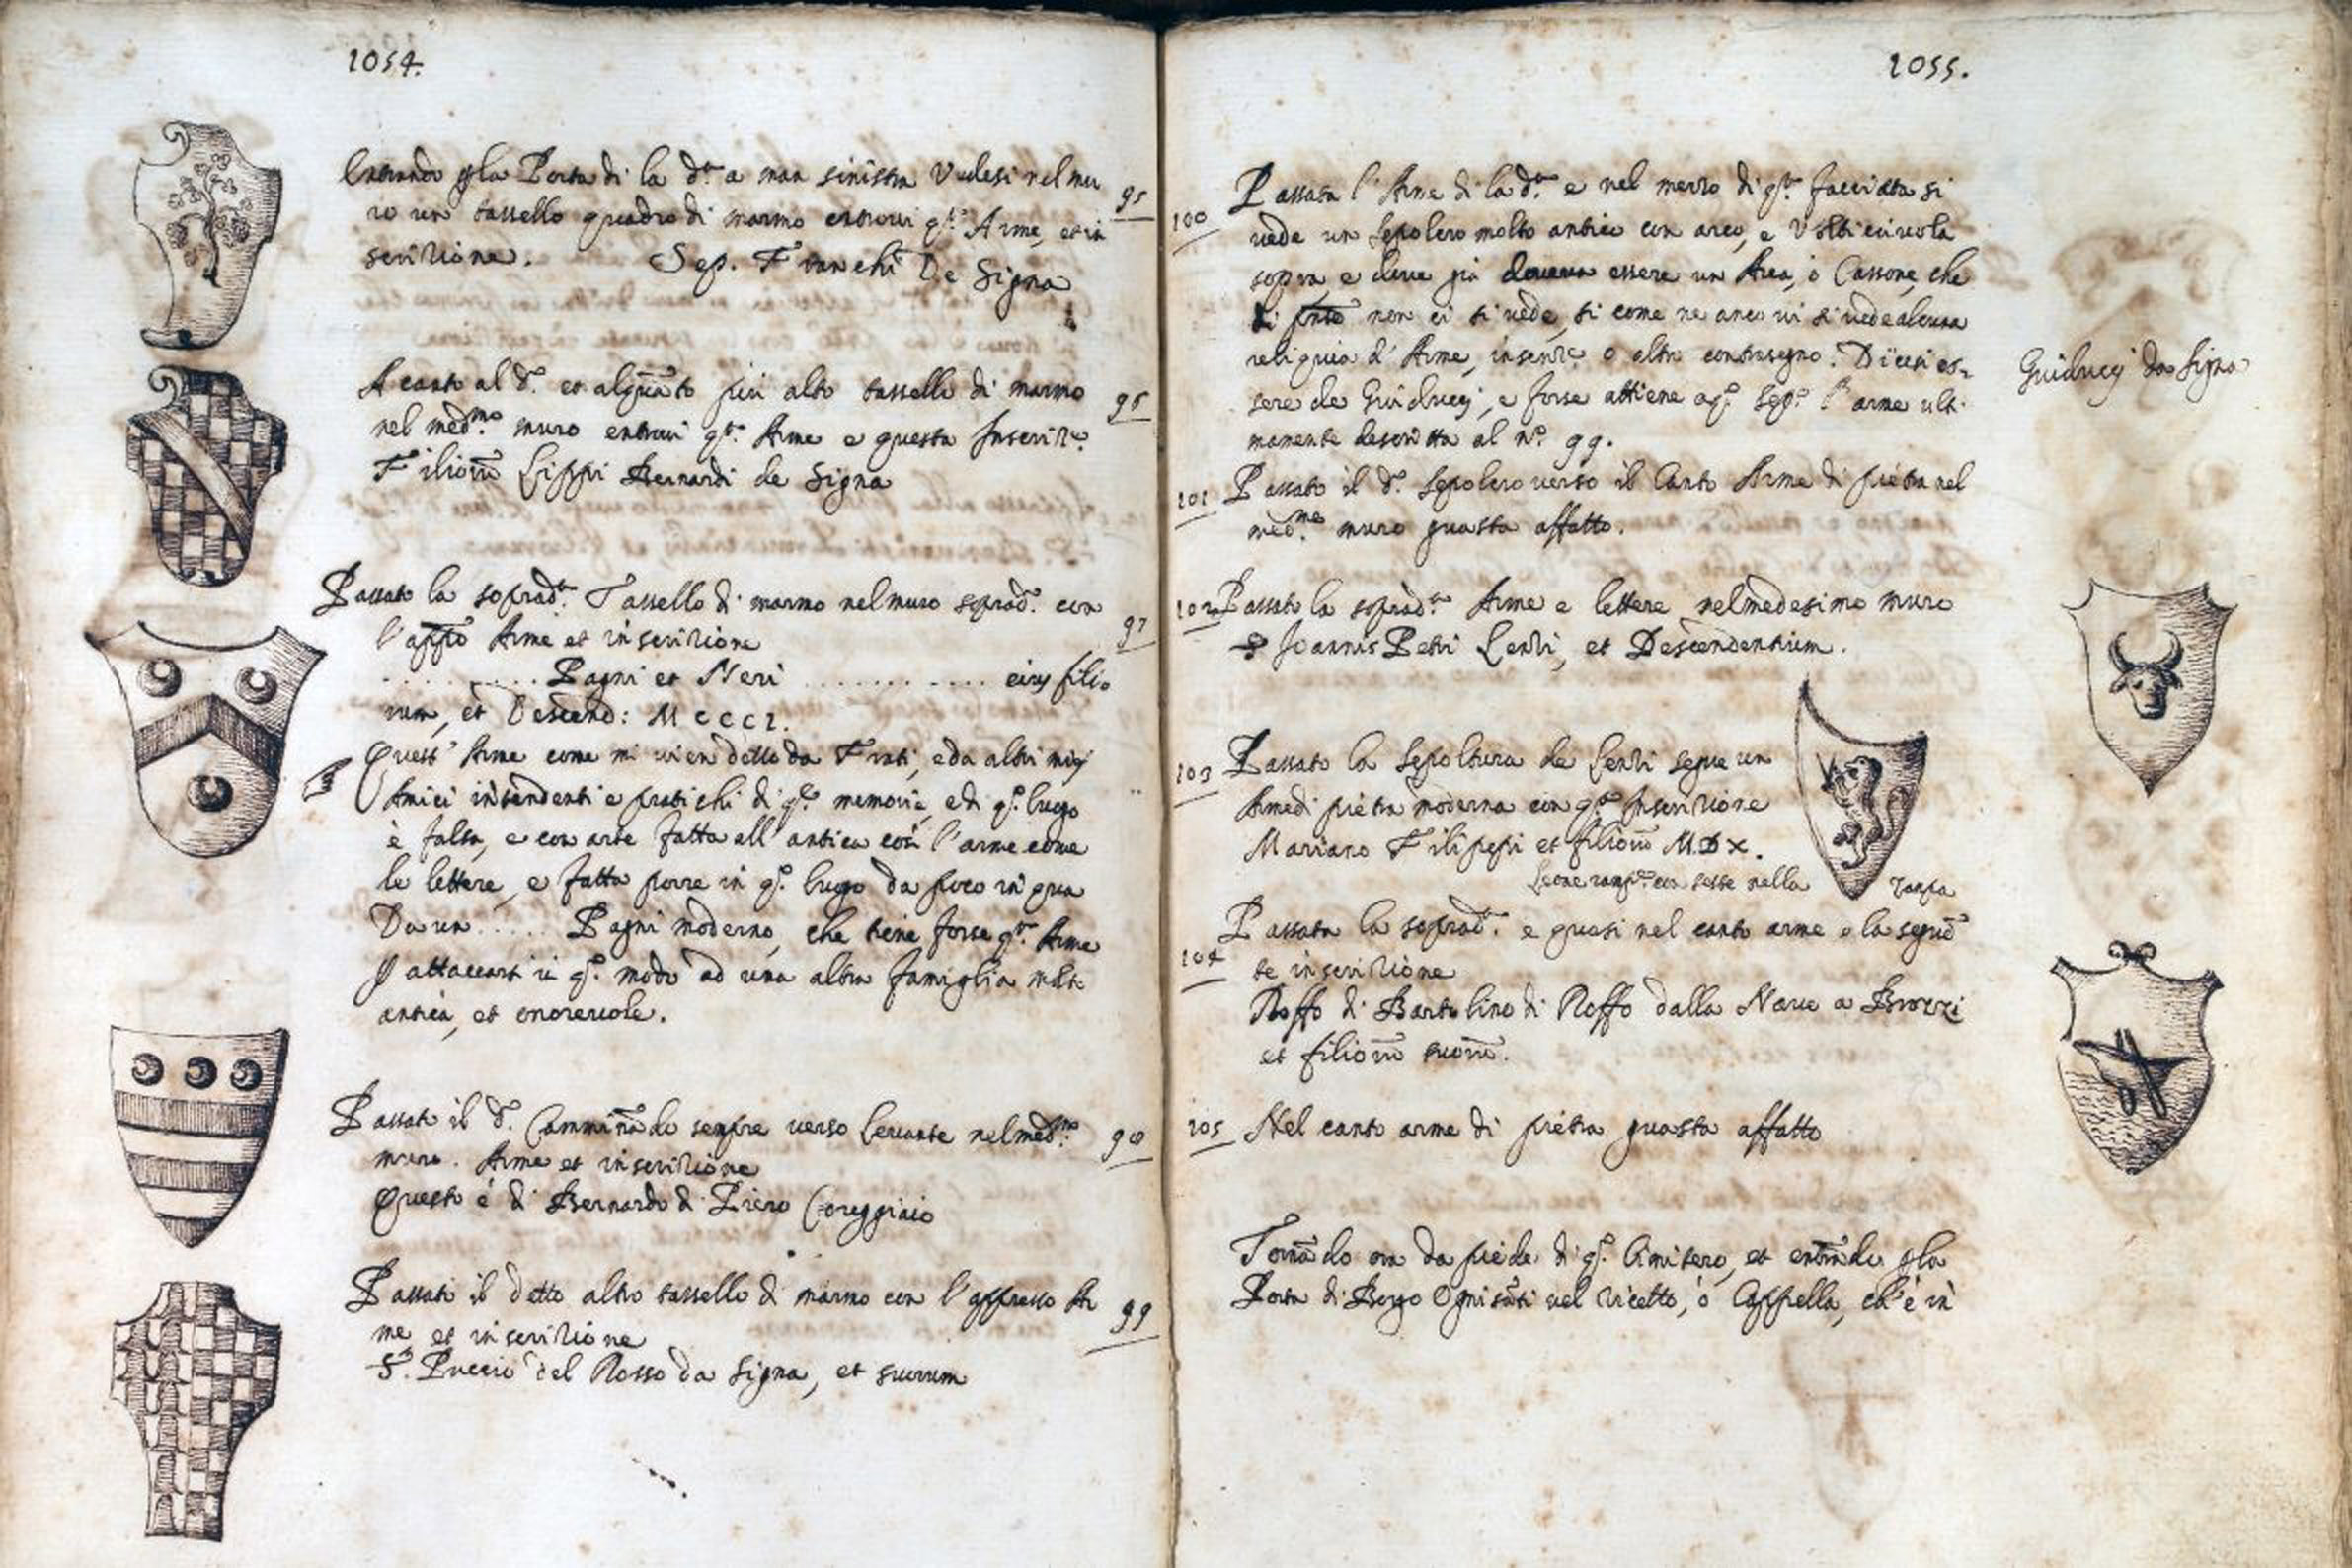 1054.
Entrando p la Porta di la d.ta a man sinistra Vedesi nel mu
ro un tassello quadro di marmo entrovi q.ta Arme, et in
scrizione.    Sep. Franchi De Signa
95
A canto al d.o et alquāto più alto tassello di marmo
nel med.mo muro entrovi q.ta Arme e questa Inscriz.e
Filiorū Lippi Bernardi de Signa
96
Passato la soprad.ta Tassello di marmo nel muro soprad.o con
l'app.o Arme et inscrizione
.......... Pagni et Neri ............ eius filio
rum, et Descend: MCCCL.
97
Quest' Arme come mi vien detto da Frati, e da altri miej
Amici intendenti e pratichi di q.te memorie, e di q.o luogo
è falsa, e con arte fatta all' antica così l'arme come
le lettere, e fatta porre in q.o luogo da poco in qua
Da un ..... Pagni moderno, che tiene forse q.ta Arme
p attaccarsi in q.o modo ad una altra famiglia molt
antica, et onorevole.
Passato il d.o Cammināndo sempre verso Levante nel med.mo
muro. Arme et inscrizione
Questo è di Bernardo di Piero Coreggiaio
98
Passato il detto altro tassello di marmo con l'appresso Ar
me et inscrizione
S. Puccio del Rosso da Signa, et suorum
99
1055.
100
Passata l'Arme di la d.ta e nel mezzo di q.ta facciata si
vede un sepolcro molto antico con arco, e Volticciuola
sopra e dove già doveva essere un Arca, ò Cassone, che
di pnte non ci si vede, si come ne anco vi si vede alcuna
reliquia d'Arme, inscriz.e o altro contrasegno. Dicesi es-
sere de Guiducij, e forse attiene a q.o Sep.o l'arme ulti-
mamente descritta al n.o 99.
Guiducij da Signa
101
Passato il d.o sepolcro verso il Canto Arme di pietra nel
med.mo muro guasta affatto.
102
Passato la soprad.ta Arme e lettere nel medesimo muro
S Joannis Petri Lenzi, et Descendentium.
103
Passato la sepoltura de Lenzi segue un
Arme di pietra moderna con q.ta Inscrizione
Mariano Filipepi et filiorū M.D.X.
Leone ramp.e con sesse nella zampa
104
Passata la soprad.ta e quasi nel canto arme e la seguē
te inscrizione
Noffo di Bartolino di Noffo dalla Nave a Brozzi
et filiorū suorū.
105
Nel canto arme di pietra guasta affatto
Tornādo ora da piede di q.o Cimitero, et entrādo p la
Porta di Borgo Ogni sāti nel ricetto, ò Cappella, ch'è in